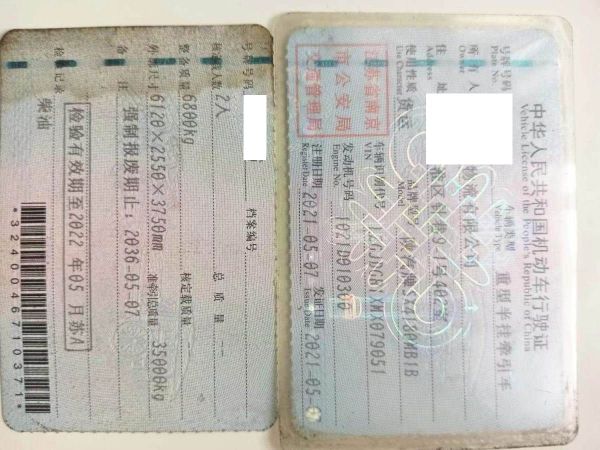 中华人民共和国机动车行驶证
Vehicle License of the People's Republic of China
号牌号码 车辆类型 重型半挂牵引车
Plate No. Vehicle Type
所有人 物流有限公司
Owner
住址 号402室
Address
使用性质 货运 品牌型号
Use Character Model
江苏省南京
市公安局
交通管理局
车辆识别代号
VIN
发动机号码
Engine No.
注册日期 2021-05-07 发证日期 2021-05-
Register Date Issue Date
号牌号码 档案编号
核定载人数 2人 总质量 --
整备质量 6800kg 核定载质量 --
外廓尺寸 6120×2550×3750mm 准牵引总质量 35000kg
备注 强制报废期止:2036-05-07
检验记录 检验有效期至2022年05月苏A
柴油
*3240046710371*